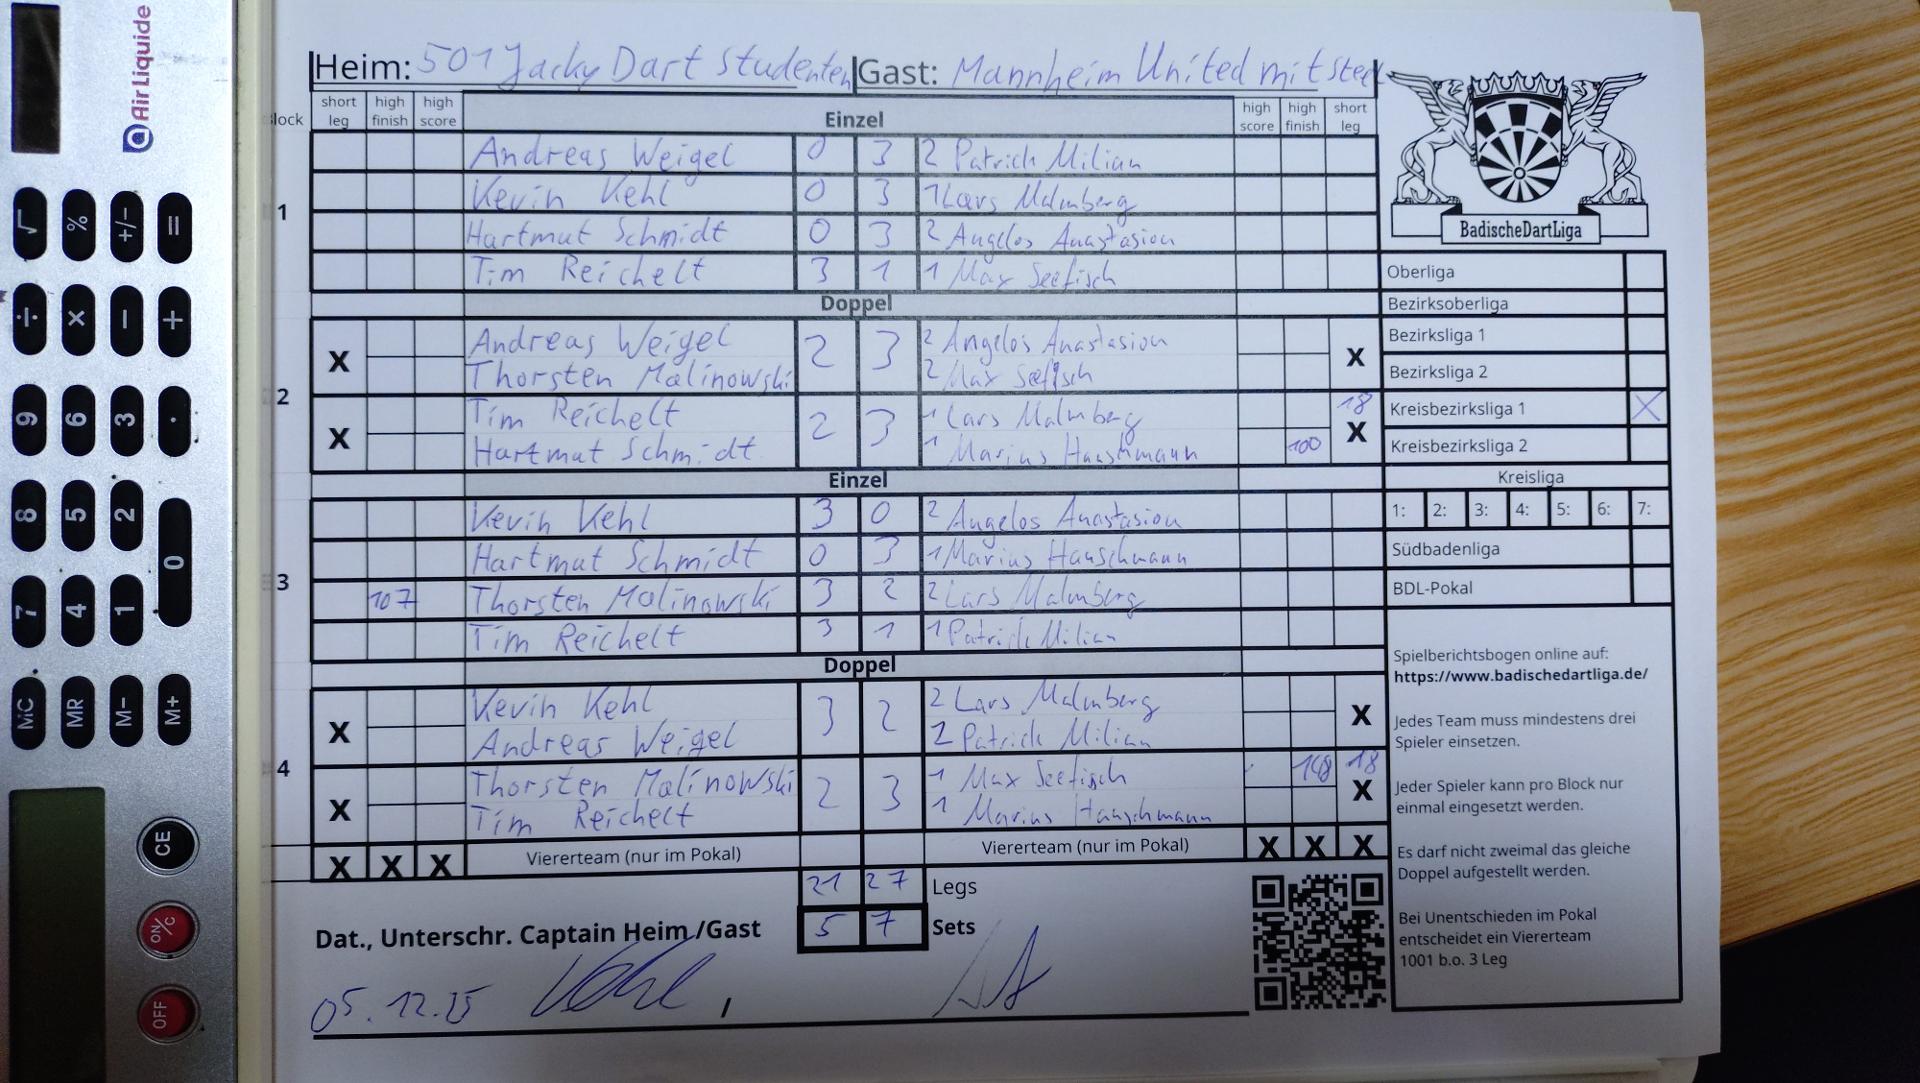 Heim: 501 Jacky Dart Studenten Gast: Mannheim United mit steel
Block short leg high finish high score Einzel high score high finish short leg
Andreas Weigel 0 3 2 Patrick Milian
Kevin Kehl 0 3 1 Lars Malmberg
1
Hartmut Schmidt 0 3 2 Angelos Anastasion
Tim Reichelt 3 1 1 Max Seefisch
Doppel
Andreas Weigel 2 3 2 Angelos Anastasion
X X
Thorsten Malinowski 2 Max Seefisch
2
Tim Reichelt 2 3 1 Lars Malmberg 18
X X
Hartmut Schmidt 1 Marius Hauschmann 100
Einzel
Kevin Kehl 3 0 2 Angelos Anastasion
Hartmut Schmidt 0 3 1 Marius Hauschmann
3
107 Thorsten Malinowski 3 2 2 Lars Malmberg
Tim Reichelt 3 1 1 Patrick Milian
Doppel
Kevin Kehl 3 2 2 Lars Malmberg
X X
Andreas Weigel 2 Patrick Milian
4
Thorsten Malinowski 2 3 1 Max Seefisch 148 18
X X
Tim Reichelt 1 Marius Hauschmann
X X X Viererteam (nur im Pokal) Viererteam (nur im Pokal) X X X
21 27 Legs
Dat., Unterschr. Captain Heim /Gast 5 7 Sets
05.12.25 Kehl
BadischeDartLiga
Oberliga
Bezirksoberliga
Bezirksliga 1
Bezirksliga 2
Kreisbezirksliga 1 X
Kreisbezirksliga 2
Kreisliga
1: 2: 3: 4: 5: 6: 7:
Südbadenliga
BDL-Pokal
Spielberichtsbogen online auf:
https://www.badischedartliga.de/
Jedes Team muss mindestens drei
Spieler einsetzen.
Jeder Spieler kann pro Block nur
einmal eingesetzt werden.
Es darf nicht zweimal das gleiche
Doppel aufgestellt werden.
Bei Unentschieden im Pokal
entscheidet ein Viererteam
1001 b.o. 3 Leg
Air Liquide
√ % +/- =
÷ × − +
9 6 3 .
8 5 2 0
7 4 1
MC MR M- M+
CE
ON/C
OFF